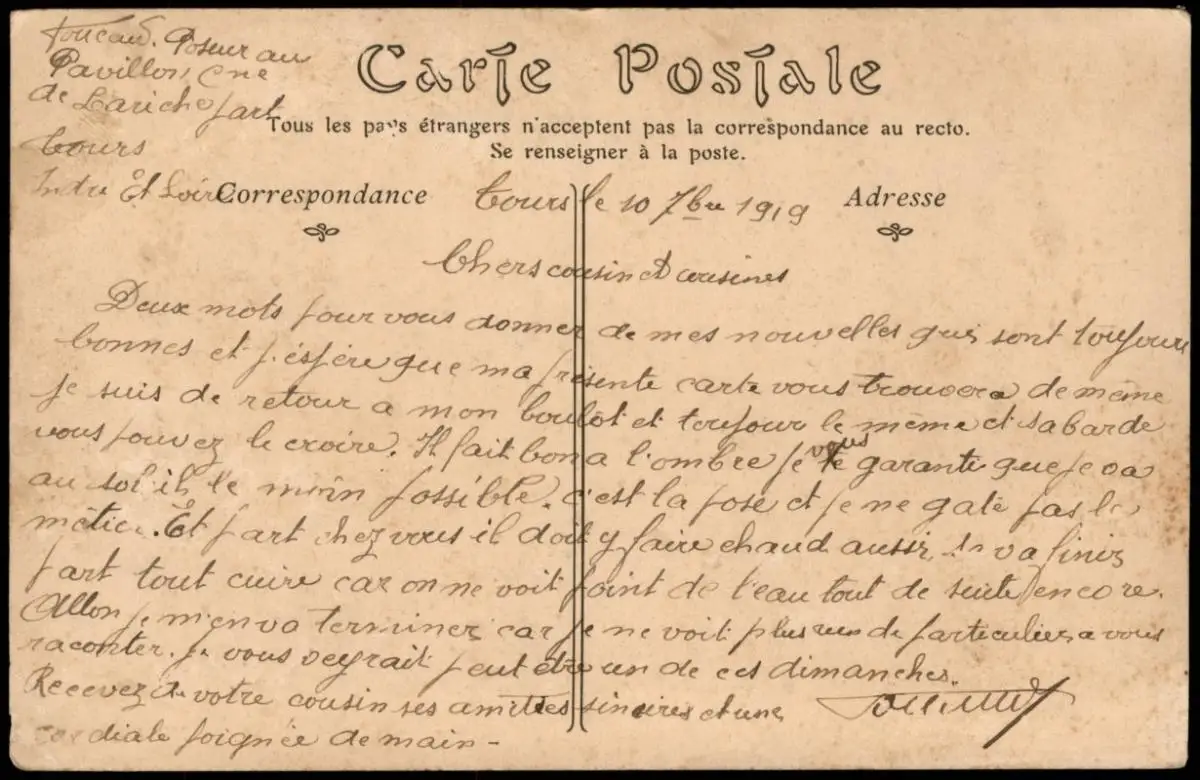 Poseur au
Pavillon Cne
de Lariche part
Tours
Indre Et Loire
Carte Postale
Tous les pays étrangers n'acceptent pas la correspondance au recto.
Se renseigner à la poste.
Correspondance
Adresse
Tours le 10 7bre 1919
Chers cousin et cousines
Deux mots pour vous donner de mes nouvelles qui sont toujours
bonnes et j'éspére que ma présente carte vous trouvera de même
je suis de retour a mon boulot et toujour le même et sabarde
vous pouvez le croire. Il fait bon a l'ombre je vous garante que je va
au soleil le moin possible. c'est la pose et je ne gate pas le
métier. Et part chez vous il doit y faire chaud aussi va finir
part tout cuire car on ne voit point de l'eau tout de suite encore.
Allon je m'en va terminer car je ne voit plus rien de particulier a vous
raconter. Je vous veyrait peut être un de ces dimanches.
Recevez de votre cousin ses amitiés sincires et une
cordiale poignée de main -